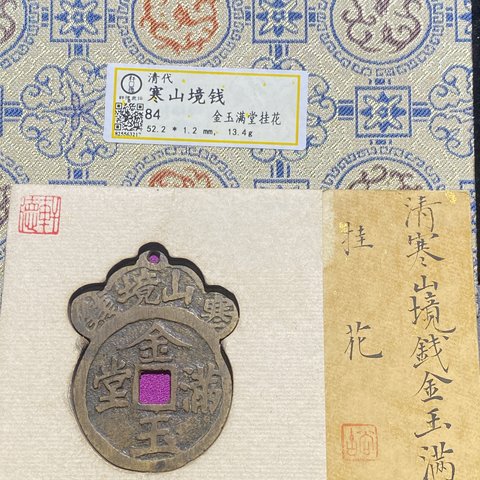 清代
寒山境钱
84 金玉满堂挂花
52.2 * 1.2 mm, 13.4g
清寒山境錢金玉滿
挂花
寒山境
金玉滿堂